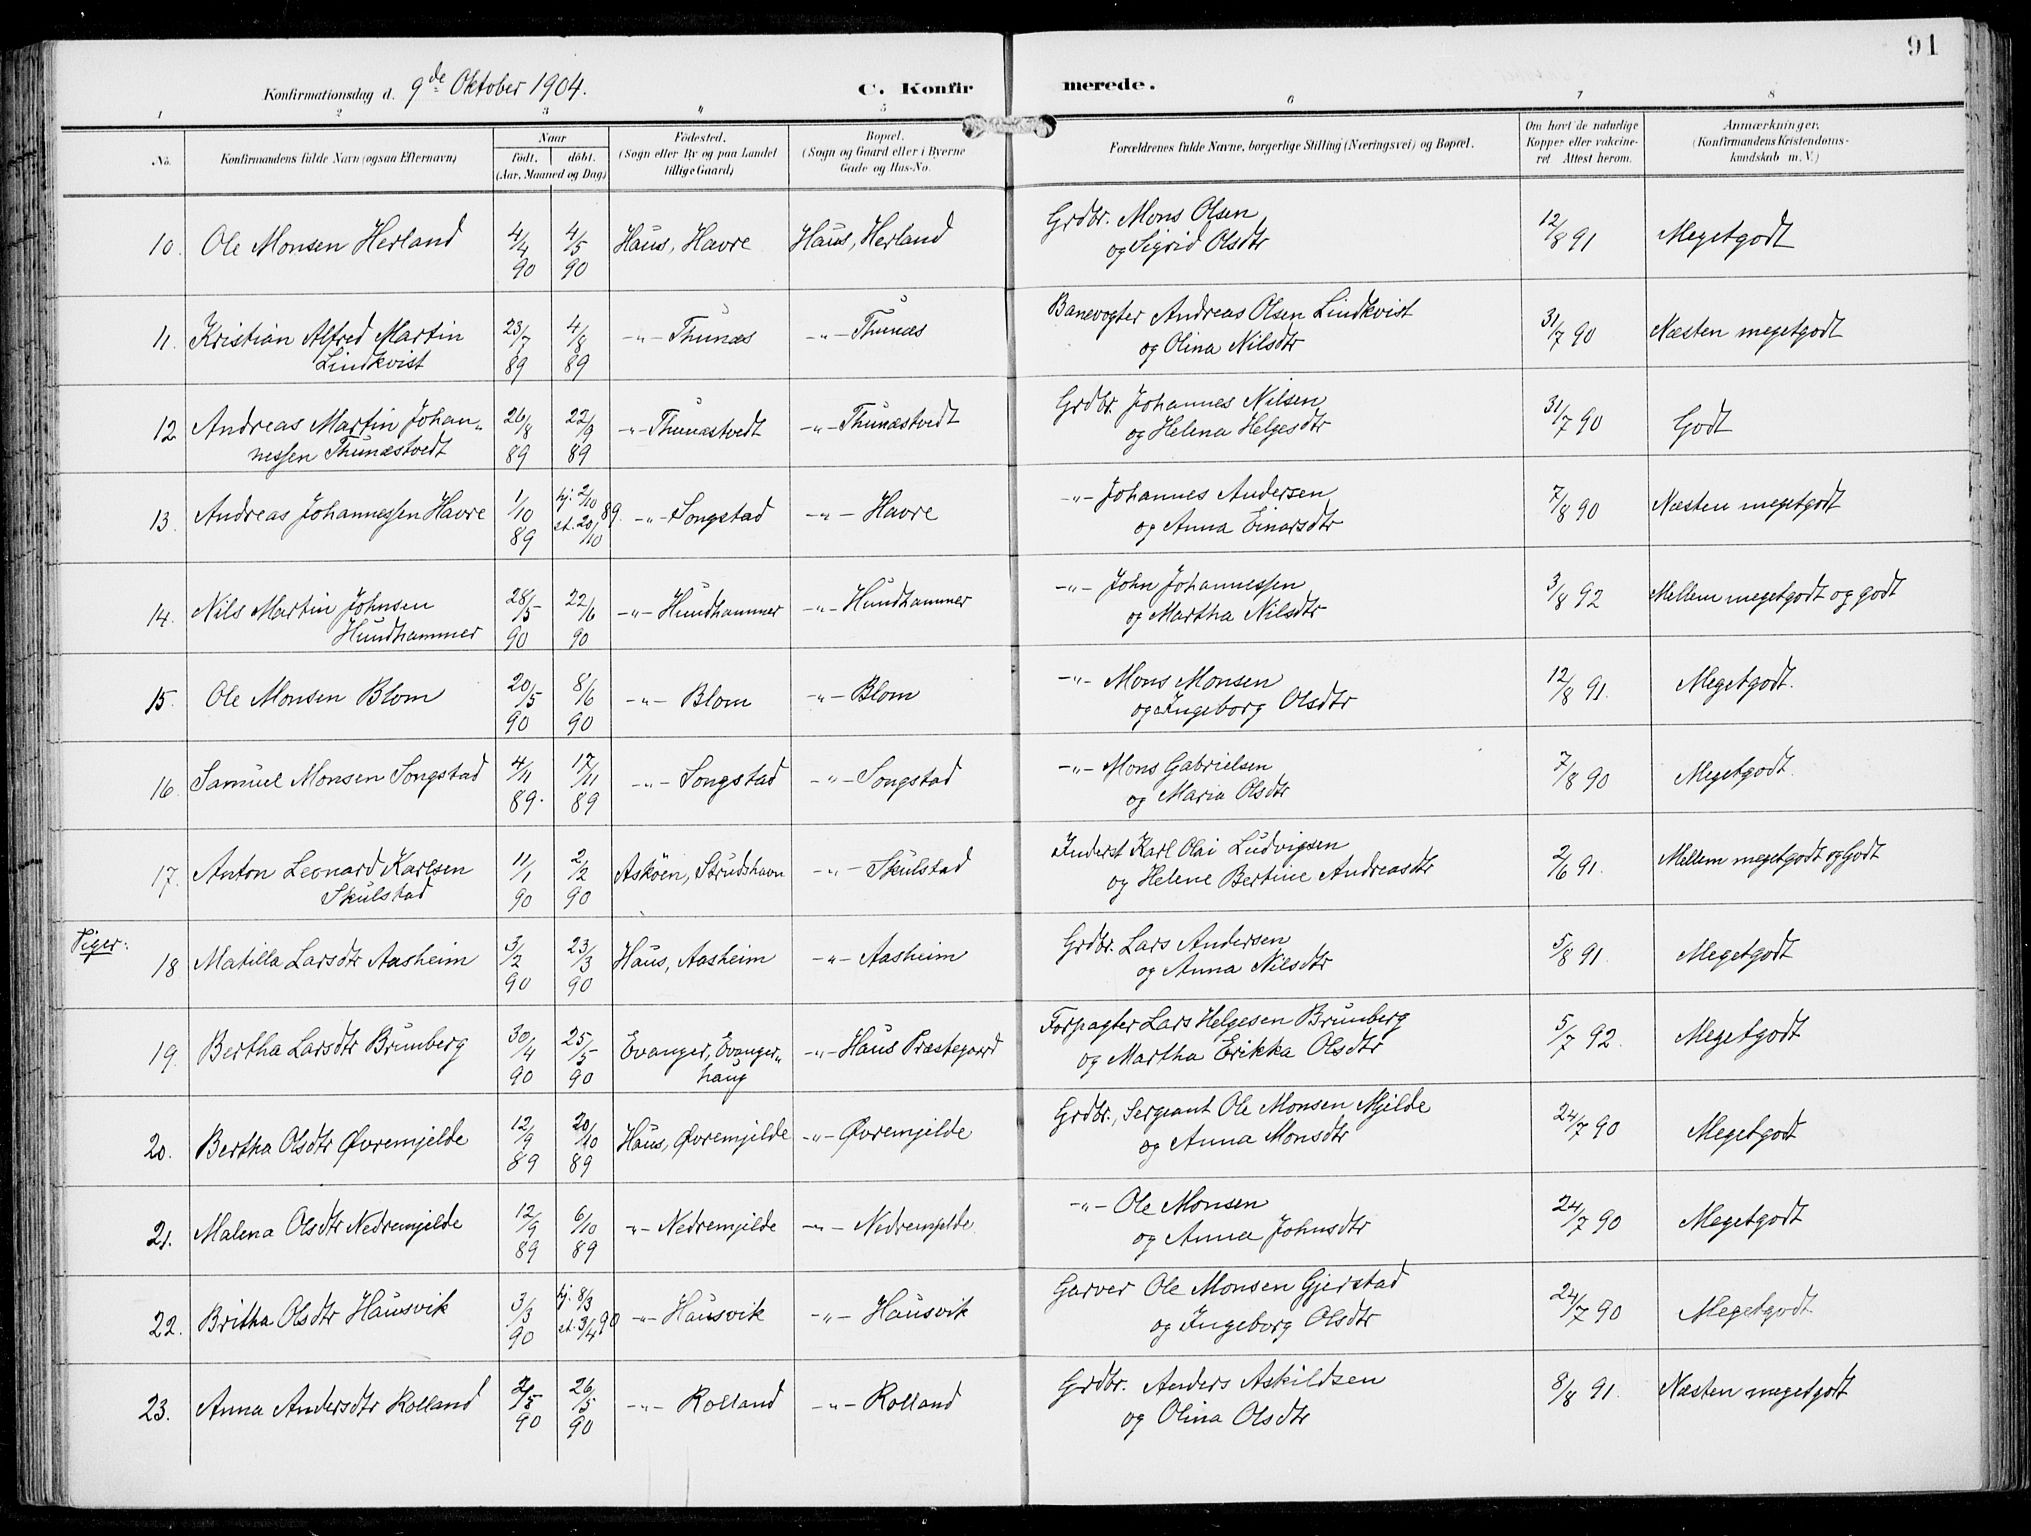 91
Konfirmationsdag d. 9de Oktober 1904.
C. Konfirmerede.
1 2 3 4 5 6 7 8
No. Konfirmandens fulde Navn (ogsaa Efternavn) Naar födt. döbt. (Aar, Maaned og Dag) Födested. (Sogn eller By og paa Landet tillige Gaard) Bopæl. (Sogn og Gaard eller i Byerne Gade og Hus-No. Forældrenes fulde Navne, borgerlige Stilling (Næringsvei) og Bopæl. Om havt de naturlige Kopper eller vakcineret. Attest herom. Anmærkninger. (Konfirmandens Kristendomskundskab m. V.)
10. Ole Monsen Herland 4/4 90 4/5 90 Haus, Havre Haus, Herland Grdbr. Mons Olsen og Sigrid Olsdtr 12/8 91 Megetgodt
11. Kristian Alfred Martin Lindkvist 23/7 89 4/8 89 -"- Thunæs -"- Thunæs Banevogter Andreas Olsen Lindkvist og Olina Nilsdtr 31/7 90 Næsten megetgodt
12 Andreas Martin Johannessen Thunæstvedt 26/8 89 22/9 89 -"- Thunæstvedt -"- Thunæstvedt Grdbr. Johannes Nilsen og Helena Helgesdtr 31/7 90 Godt
13. Andreas Johannessen Havre 1/10 89 hj. 2/10 st. 20/10 89 -"- Songstad -"- Havre -"- Johannes Andersen og Anna Einarsdtr 7/8 90 Næsten megetgodt
14. Nils Martin Johnsen Hundhammer 28/5 90 22/6 90 -"- Hundhammer -"- Hundhammer -"- John Johannessen og Martha Nilsdtr 3/8 92 Mellem megetgodt og godt
15. Ole Monsen Blom 20/5 90 8/6 90 -"- Blom -"- Blom -"- Mons Monsen og Ingeborg Olsdtr 12/8 91. Megetgodt.
16. Samuel Monsen Songstad 4/11 89. 17/11 89 -"- Songstad -"- Songstad -"- Mons Gabrielsen og Maria Olsdtr 7/8 90 Megetgodt.
17. Anton Leonard Karlsen Skulstad 11/1 90 2/2 90 Askøen, Strudshavn -"- Skulstad Inderst Karl Olai Ludvigsen og Helene Bertine Andreasdtr 2/6 91. Mellem megetgodt og Godt
Piger:
18 Matilla Larsdtr Aasheim 3/2 90 23/3 90 Haus, Aasheim -"- Aasheim Grdbr. Lars Andersen og Anna Nilsdtr 5/8 91. Megetgodt
19. Bertha Larsdtr Brunberg 30/4 90 25/5 90 Evanger, Evangerhaug -"- Haus Præstegaard Forpagter Lars Helgesen Brunberg og Martha Erikka Olsdtr 5/7 92. Megetgodt
20. Bertha Olsdtr Øvremjelde 12/9 89 20/10 89 Haus, Øvremjelde -"- Øvremjelde Grdbr., Sergeant Ole Monsen Mjelde og Anna Monsdtr 24/7 90 Megetgodt
21. Malena Olsdtr Nedremjelde 12/9 89 6/10 89 -"- Nedremjelde -"- Nedremjelde -"- Ole Monsen og Anna Johnsdtr 24/7 90 Megetgodt
22. Britha Olsdtr Hausvik 3/3 90 hj. 8/3 st. 3/4 90 -"- Hausvik -"- Hausvik Garver Ole Monsen Gjerstad og Ingeborg Olsdtr 24/7 90 Megetgodt
23. Anna Andersdtr Rolland 2/5 90 26/5 90 -"- Rolland -"- Rolland Grdbr. Anders Askildsen og Olina Olsdtr 8/8 91. Næsten megetgodt